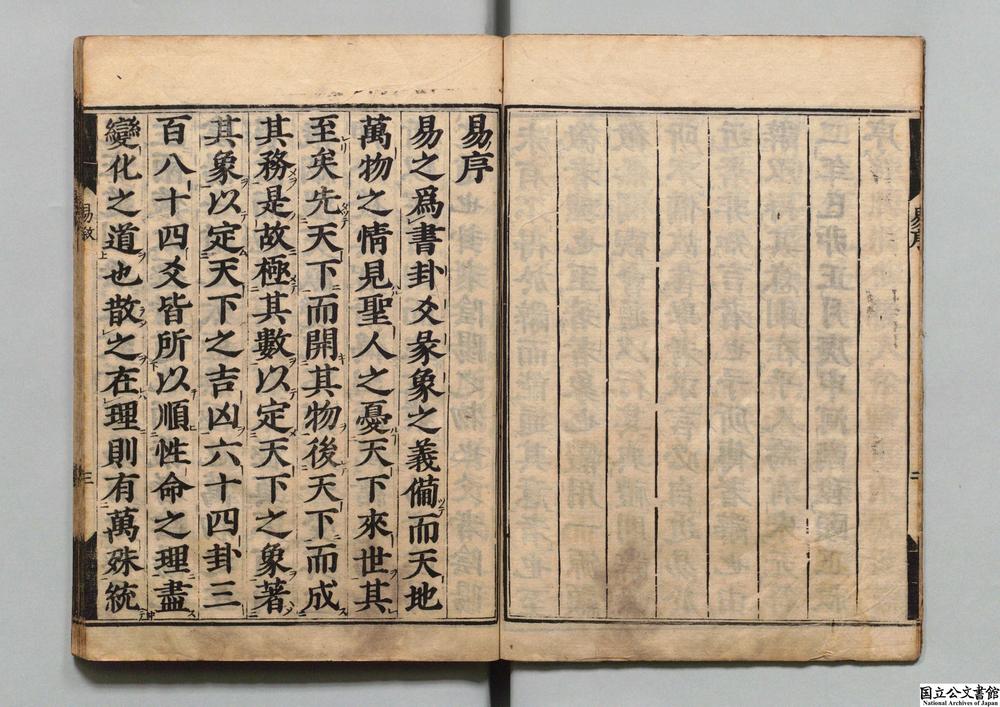 易序
易之爲書卦爻彖象之義備而天地
萬物之情見聖人之憂天下來世其
至矣先天下而開其物後天下而成
其務是故極其數以定天下之象著
其象以定天下之吉凶六十四卦三
百八十四爻皆所以順性命之理盡
變化之道也散之在理則有萬殊統
易序
二
易敘
三
国立公文書館
National Archives of Japan